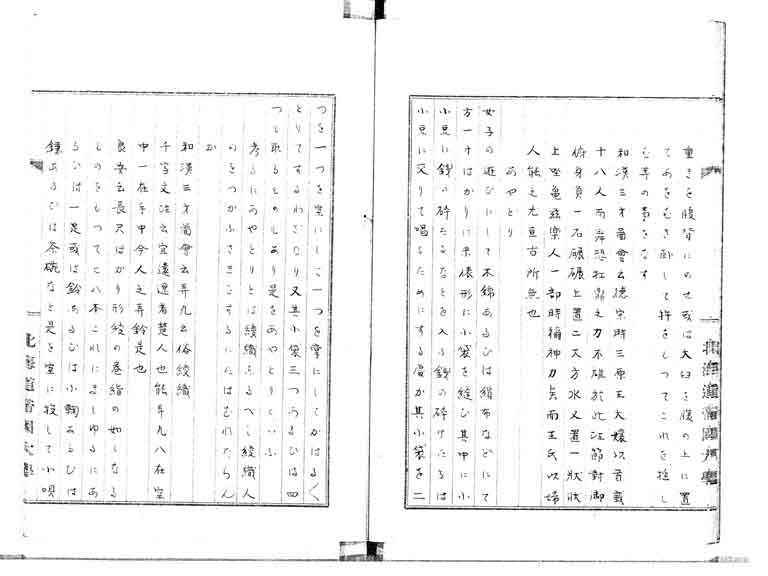 重きを腹背にのせ或は大臼を腹の上に置
てあをむき臥して杵をもつてこれを搗し
む等の事をなす
和漢三才図會云德宗時三原王大嬢以首戴
十八人而舞恐杠鼎之力不碓於此汪節對御
俯身負一石碾碾上置二大方水又置一牀牀
上坐亀茲楽人一部時稱神力矣而王氏以婦
人能之尤亘古所無也
あやとり
女子の遊びにして木綿あるひは絹布などにて
方一寸はかりに米俵形に小袋を縫ひ其中に小
小豆に錢の砕たるなとを入る錢の砕けたるは
小豆に交りて唱るためにする處か其小袋を二
つを一つを空にし一つを掌にしてかはるく
とりてするわさなり又其小袋三つあるひは四
つと取るものもあり是をあやとりといふ
考るにあやとりとは綾織なるへし綾織人
のをつかふさまにするにたはむれたらん
か
和漢三才圖會云弄丸云俗綾織
千字文注云宜遼遼者楚人也能弄丸八在空
中一在手中今人之弄鈴是也
良安云長尺はかり形綾の巻絹の如しなる
ものをもつて二八本これにましゆるにあ
るひは一足或は鈴あるひは小鞠あるひは
鎌あるひは茶碗なと是を空に投して小唄
北海道帝国大學
北海道帝国大學